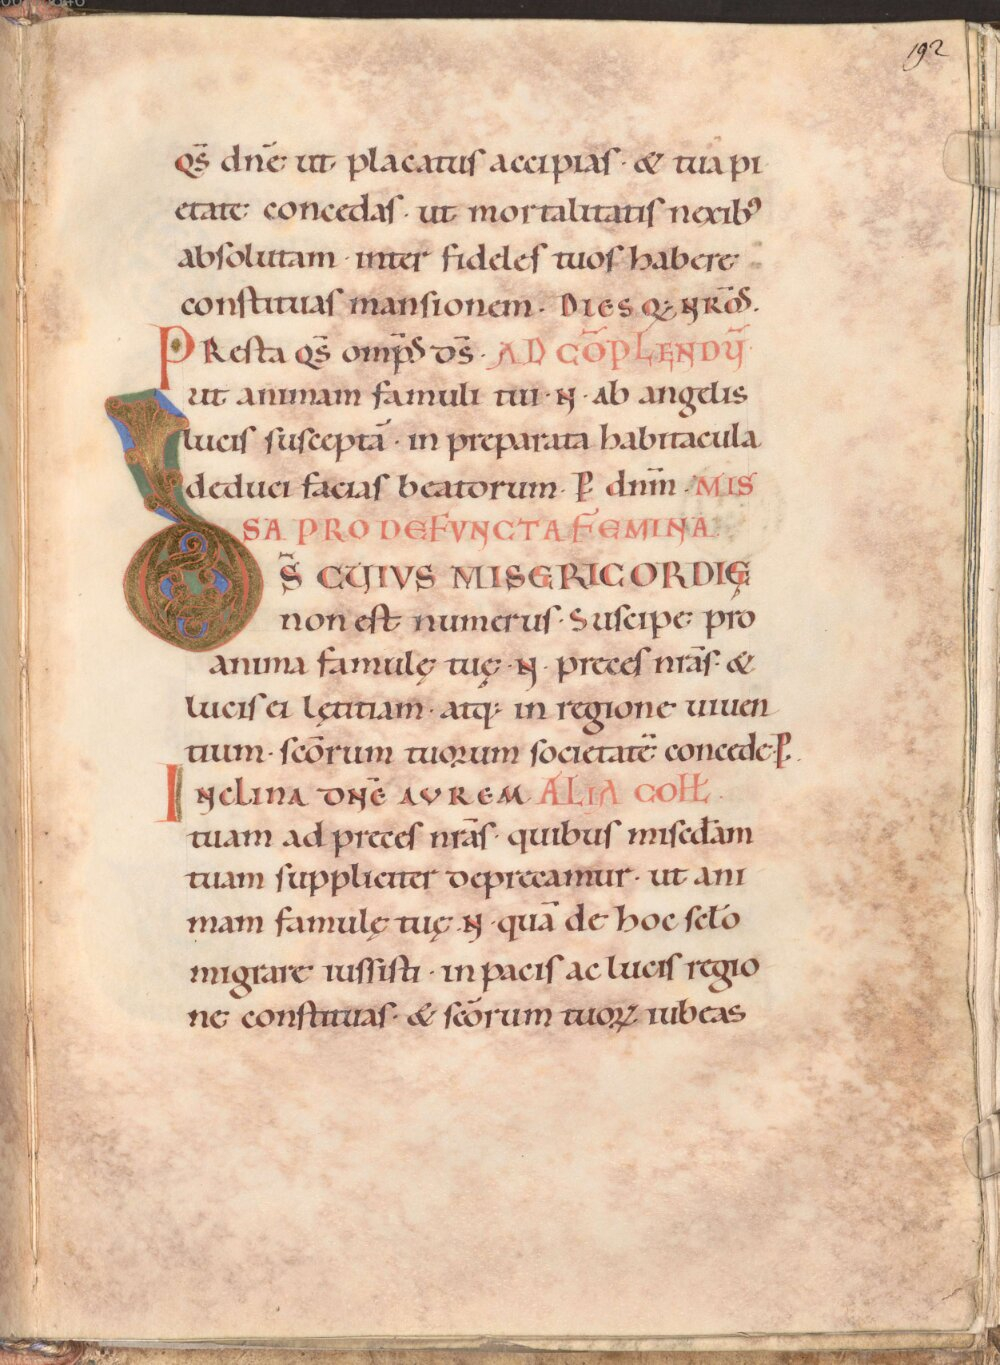 192
qs̄ dn̄e ut placatus accipias · & tua pi
etate concedas · ut mortalitatis nexibꝰ
absolutam · inter fideles tuos habere
constituas mansionem · DIES Q; NRŌS.
PResta qs̄ omp̄s ds̄ · AD CŌPLENDŪ
ut animam famuli tui · N · ab angelis
lucis susceptā · in preparata habitacula
deduci facias beatorum · P̱ dnm̄ · MIS
SA PRO DEFVNCTA FEMINA
D S̄ CUIVS MISERICORDIĘ
non est numerus · Suscipe pro
anima famulę tuę · N · preces nr̄as · &
lucis ei lętitiam · atq; in regione uiuen
tium · sc̄orum tuorum societatē concede · P̱.
INclina dn̄e AVREM ALIA COLŁ.
tuam ad preces nr̄as · quibus miscđam
tuam suppliciter deprecamur · ut ani
mam famulę tuę · N · quā de hoc scło
migrare iussisti · in pacis ac lucis regio
ne constituas · & sc̄orum tuoꝝ iubeas